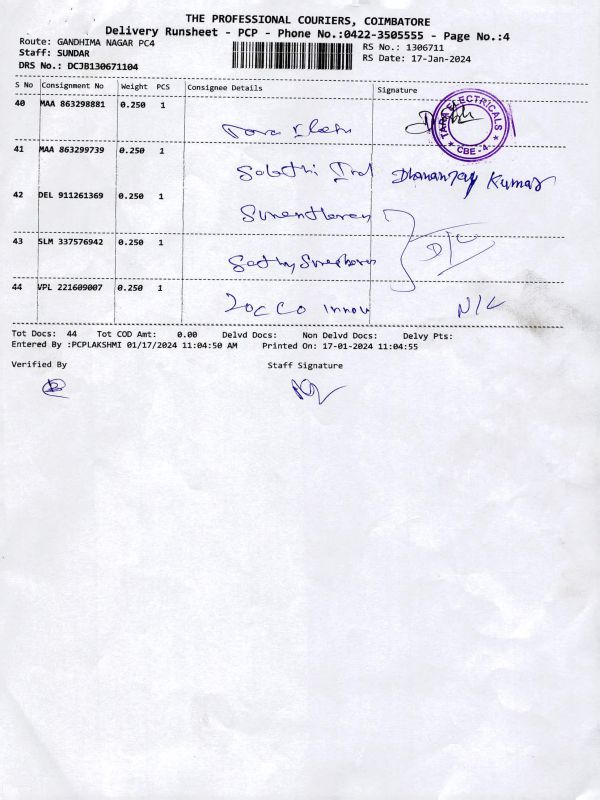 THE PROFESSIONAL COURIERS, COIMBATORE
Delivery Runsheet - PCP - Phone No.:0422-3505555 - Page No.:4
Route: GANDHIMA NAGAR PC4
RS No.: 1306711
Staff: SUNDAR
RS Date: 17-Jan-2024
DRS No.: DCJB130671104
S No Consignment No Weight PCS Consignee Details Signature
40 MAA 863298881 0.250 1
TARA ELECTRICALS
* CBE - 4. *
41 MAA 863299739 0.250 1
Dhananjay Kumar
42 DEL 911261369 0.250 1
43 SLM 337576942 0.250 1
D/L
44 VPL 221609007 0.250 1
Zocco Innov N/L
Tot Docs: 44 Tot COD Amt: 0.00 Delvd Docs: Non Delvd Docs: Delvy Pts:
Entered By :PCPLAKSHMI 01/17/2024 11:04:50 AM Printed On: 17-01-2024 11:04:55
Verified By Staff Signature